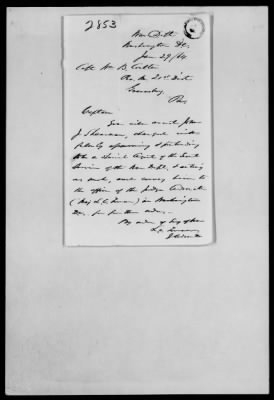 2853
War Dept
Washington Dc.
Jan 29/64
Capt Wm B. Coulter
Pro. M. 21st Dist
Greensburg
Pa
Captain
You will arrest John
J. Sherman, charged with
falsely assuming & pretending
to be a Special Agent of the Secret
Service of the War Dept, & acting
as such, and convey him to
the office of the Judge Advocate
(Maj L. C. Turner) in Washington
for further orders.
By order of Secy of War
L. C. Turner